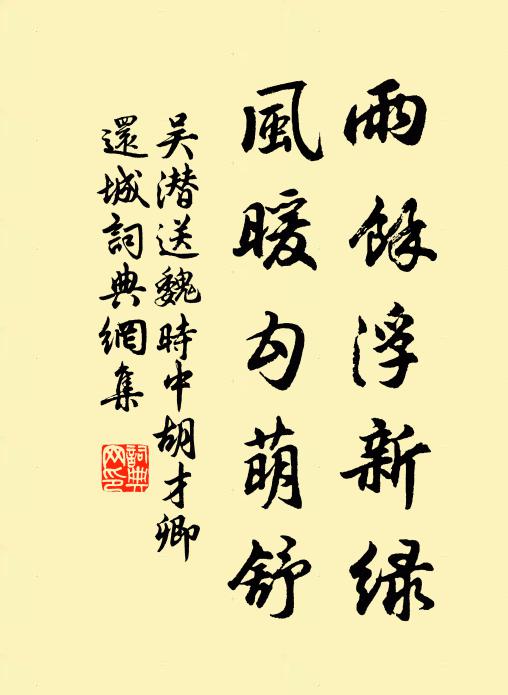 雨餘浮新緑
風暖勾萌舒
吴潜送魏時中胡才卿
還城詞典網集
詞典
网印